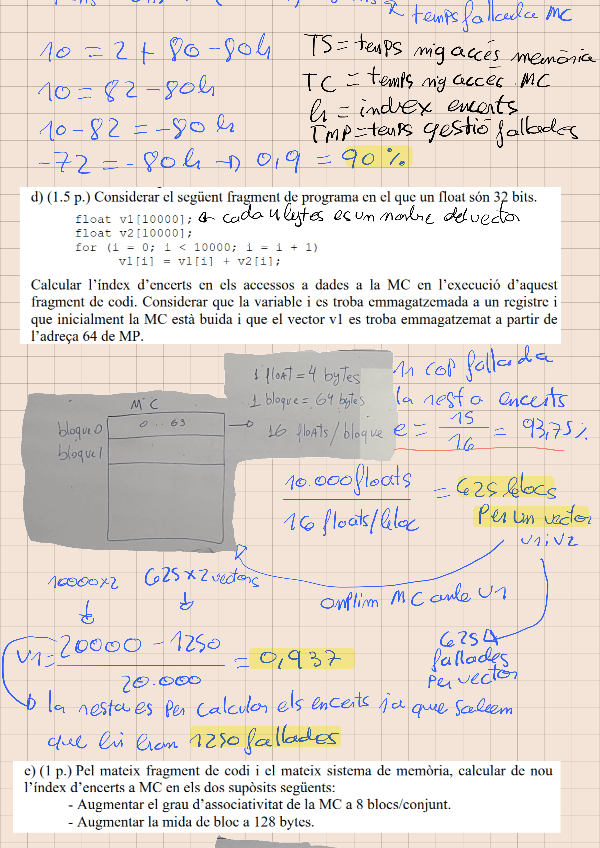 * temps fallada MC
10 = 2 + 80 - 80h
TS = temps mig accés memòria
10 = 82 - 80h
TC = temps mig accés MC
h = index encerts
10 - 82 = -80h
TMP = temps gestió fallades
-72 = -80h → 0,9 = 90%
d) (1.5 p.) Considerar el següent fragment de programa en el que un float són 32 bits.
float v1[10000]; cada 4 bytes es un nombre del vector
float v2[10000];
for (i = 0; i < 10000; i = i + 1)
v1[i] = v1[i] + v2[i];
Calcular l'índex d'encerts en els accessos a dades a la MC en l'execució d'aquest
fragment de codi. Considerar que la variable i es troba emmagatzemada a un registre i
que inicialment la MC està buida i que el vector v1 es troba emmagatzemat a partir de
l'adreça 64 de MP.
1r cop fallada
la resta encerts
e = 15/16 = 93,75%
1 float = 4 bytes
1 bloque = 64 bytes
16 floats/bloque
MC
bloque 0 0..63
bloque 1
10.000 floats
16 floats/bloc
= 625 blocs
Per un vector
v1 i v2
omplim MC amb v1
10000x2
625 x 2 vectors
625
fallades
per vector
v1 = 20000 - 1250
20.000
= 0,937
la resta es per calcular els encerts ja que sabem
que hi han 1250 fallades
e) (1 p.) Pel mateix fragment de codi i el mateix sistema de memòria, calcular de nou
l'índex d'encerts a MC en els dos supòsits següents:
- Augmentar el grau d'associativitat de la MC a 8 blocs/conjunt.
- Augmentar la mida de bloc a 128 bytes.